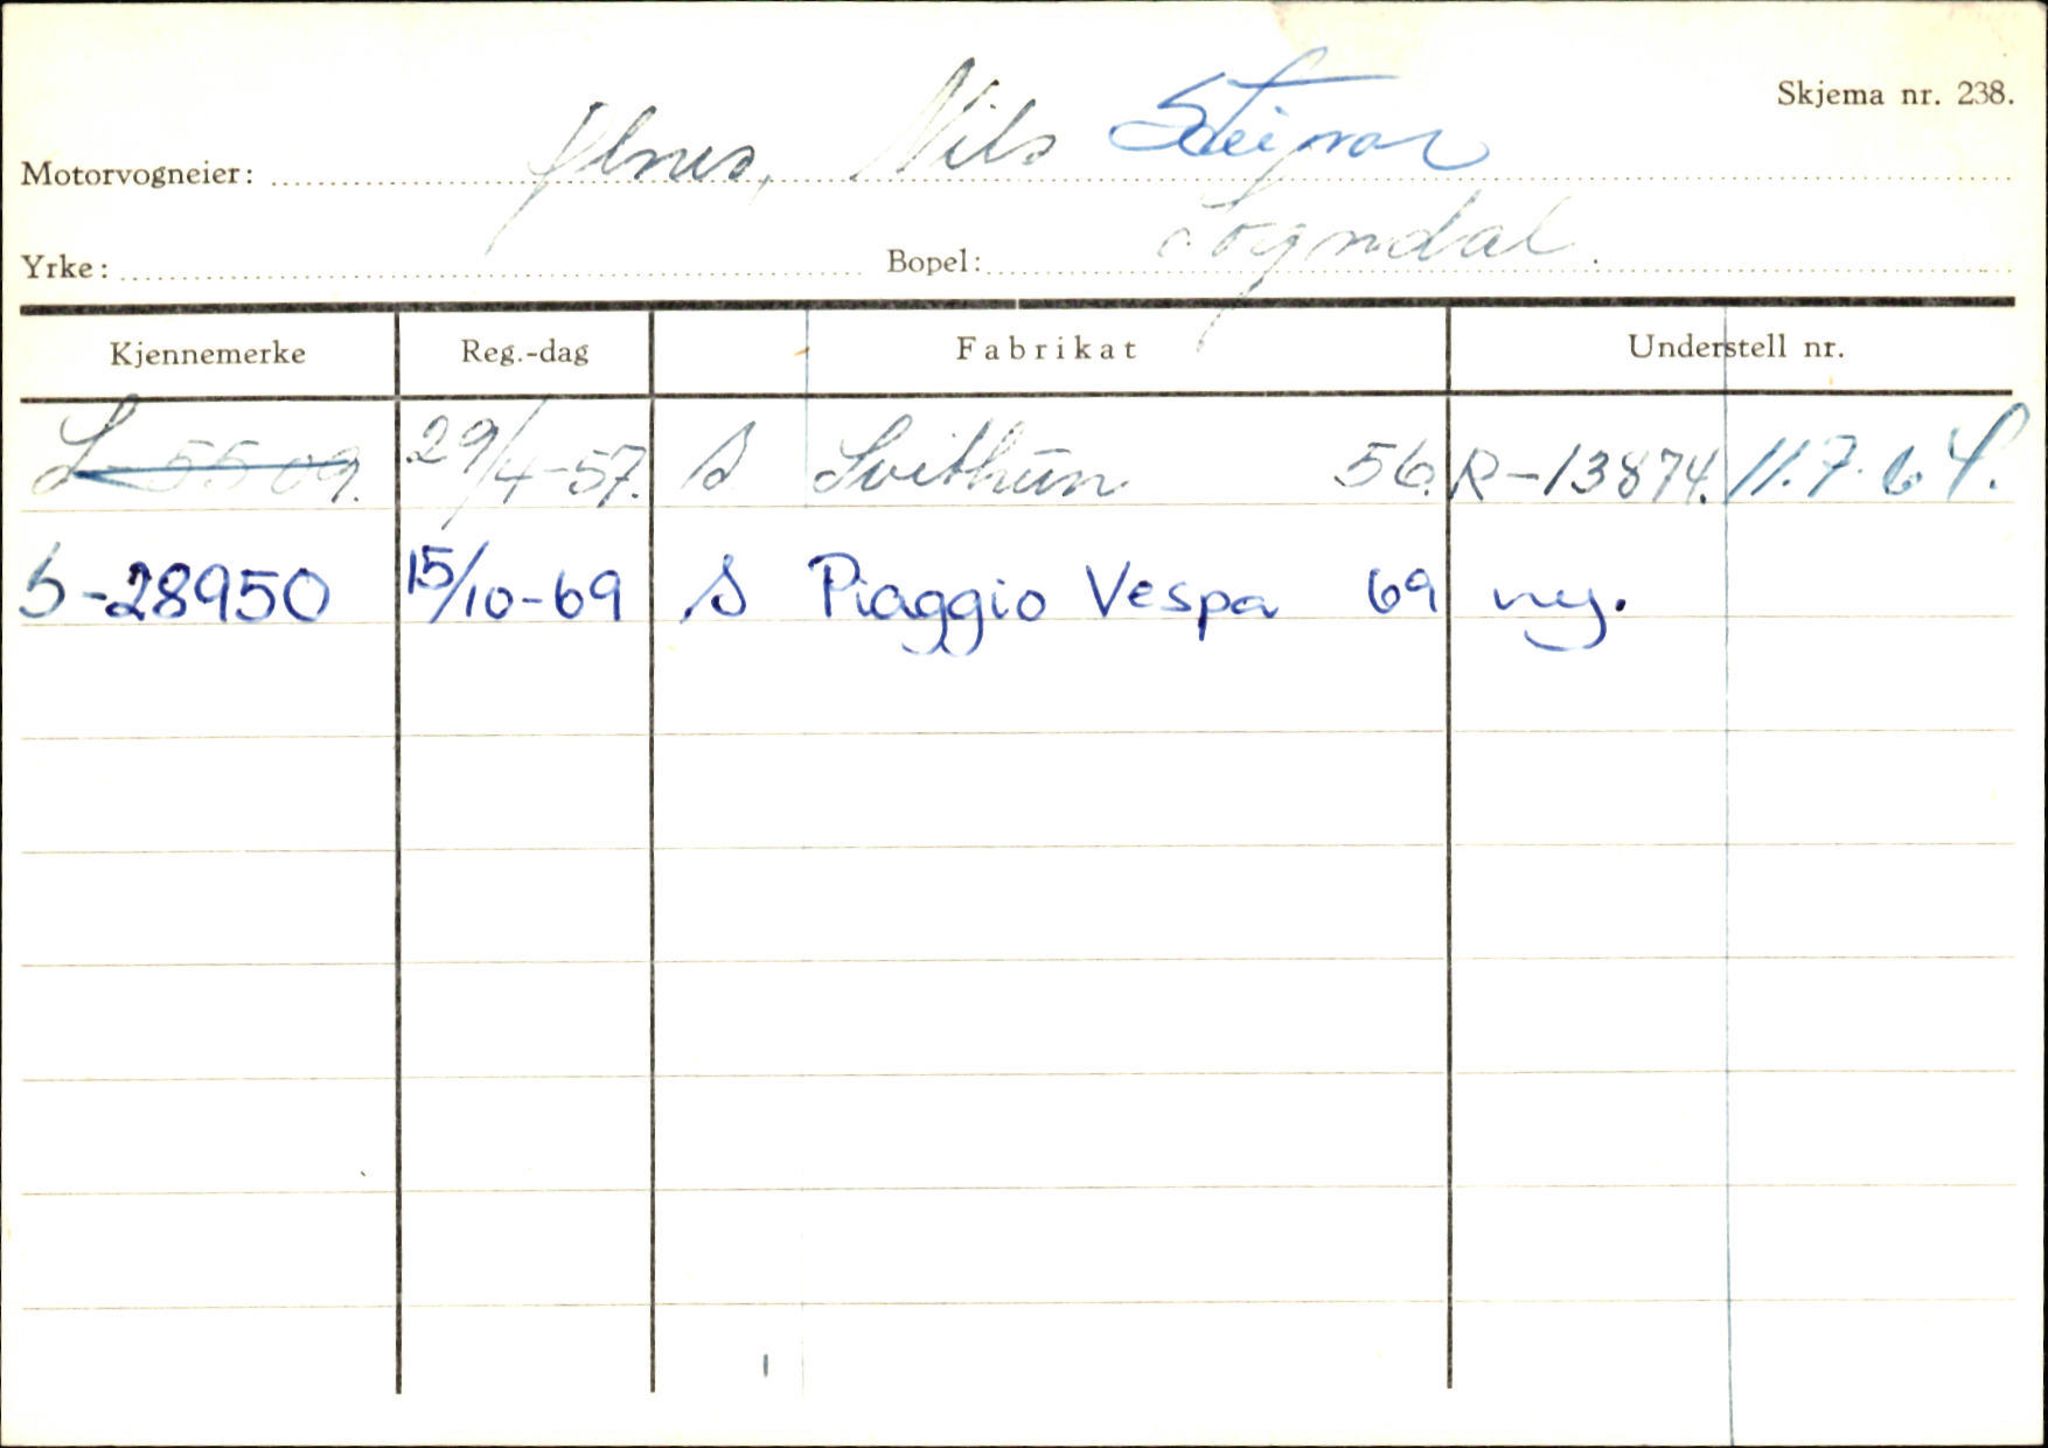 Skjema nr. 238.
Motorvogneier: Ylnes, Nils Steinar
Yrke: Bopel: Sogndal.
Kjennemerke Reg.-dag Fabrikat Understell nr.
S-5509. 29/4-57. S Svithun 56. R-13874. 11.7.64.
S-28950 15/10-69 S Piaggio Vespa 69 ny.